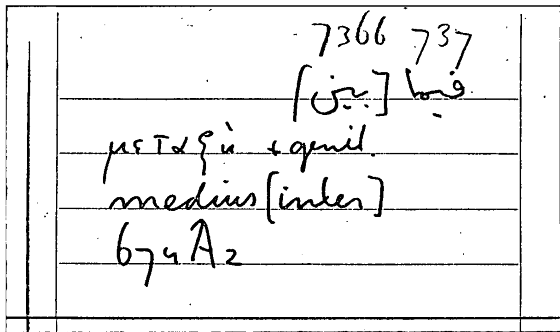 7366 737
فيما [بين]
μεταξὺ + genit.
medius [inter]
674 A2